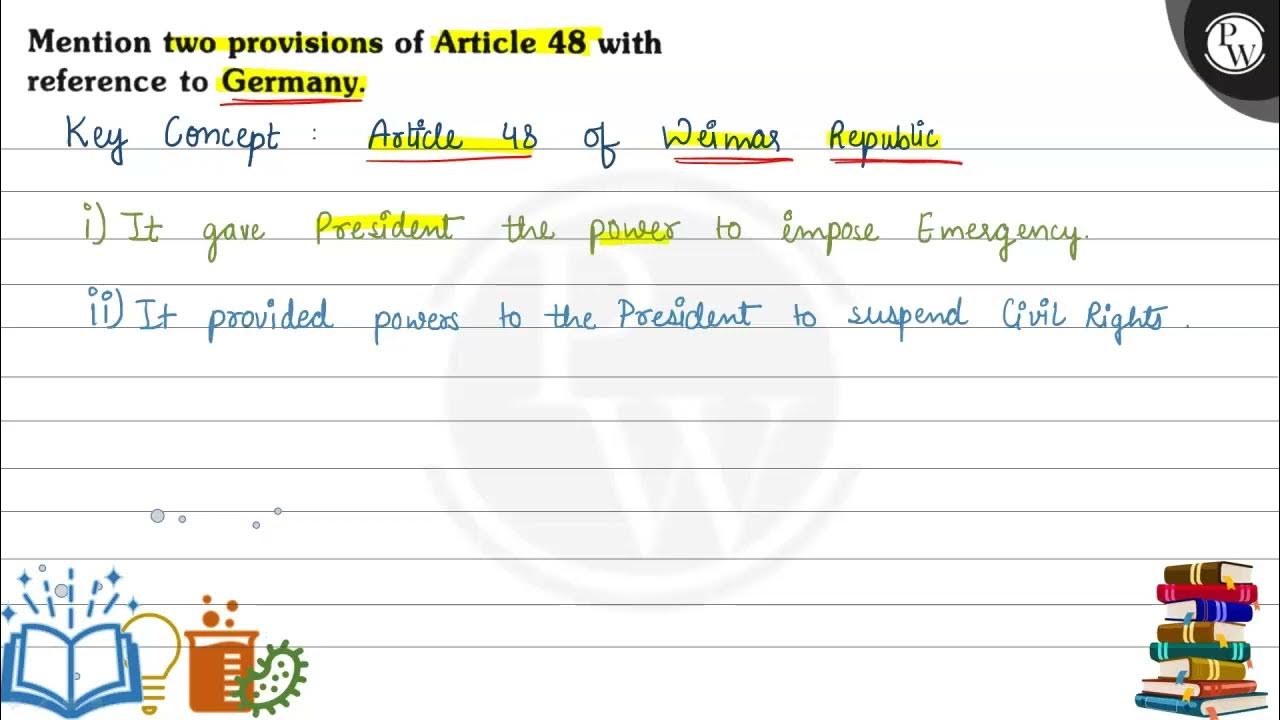 Mention two provisions of Article 48 with
reference to Germany.
Key Concept : Article 48 of Weimar Republic
i) It gave President the power to impose Emergency.
ii) It provided powers to the President to suspend Civil Rights.
PW
PW